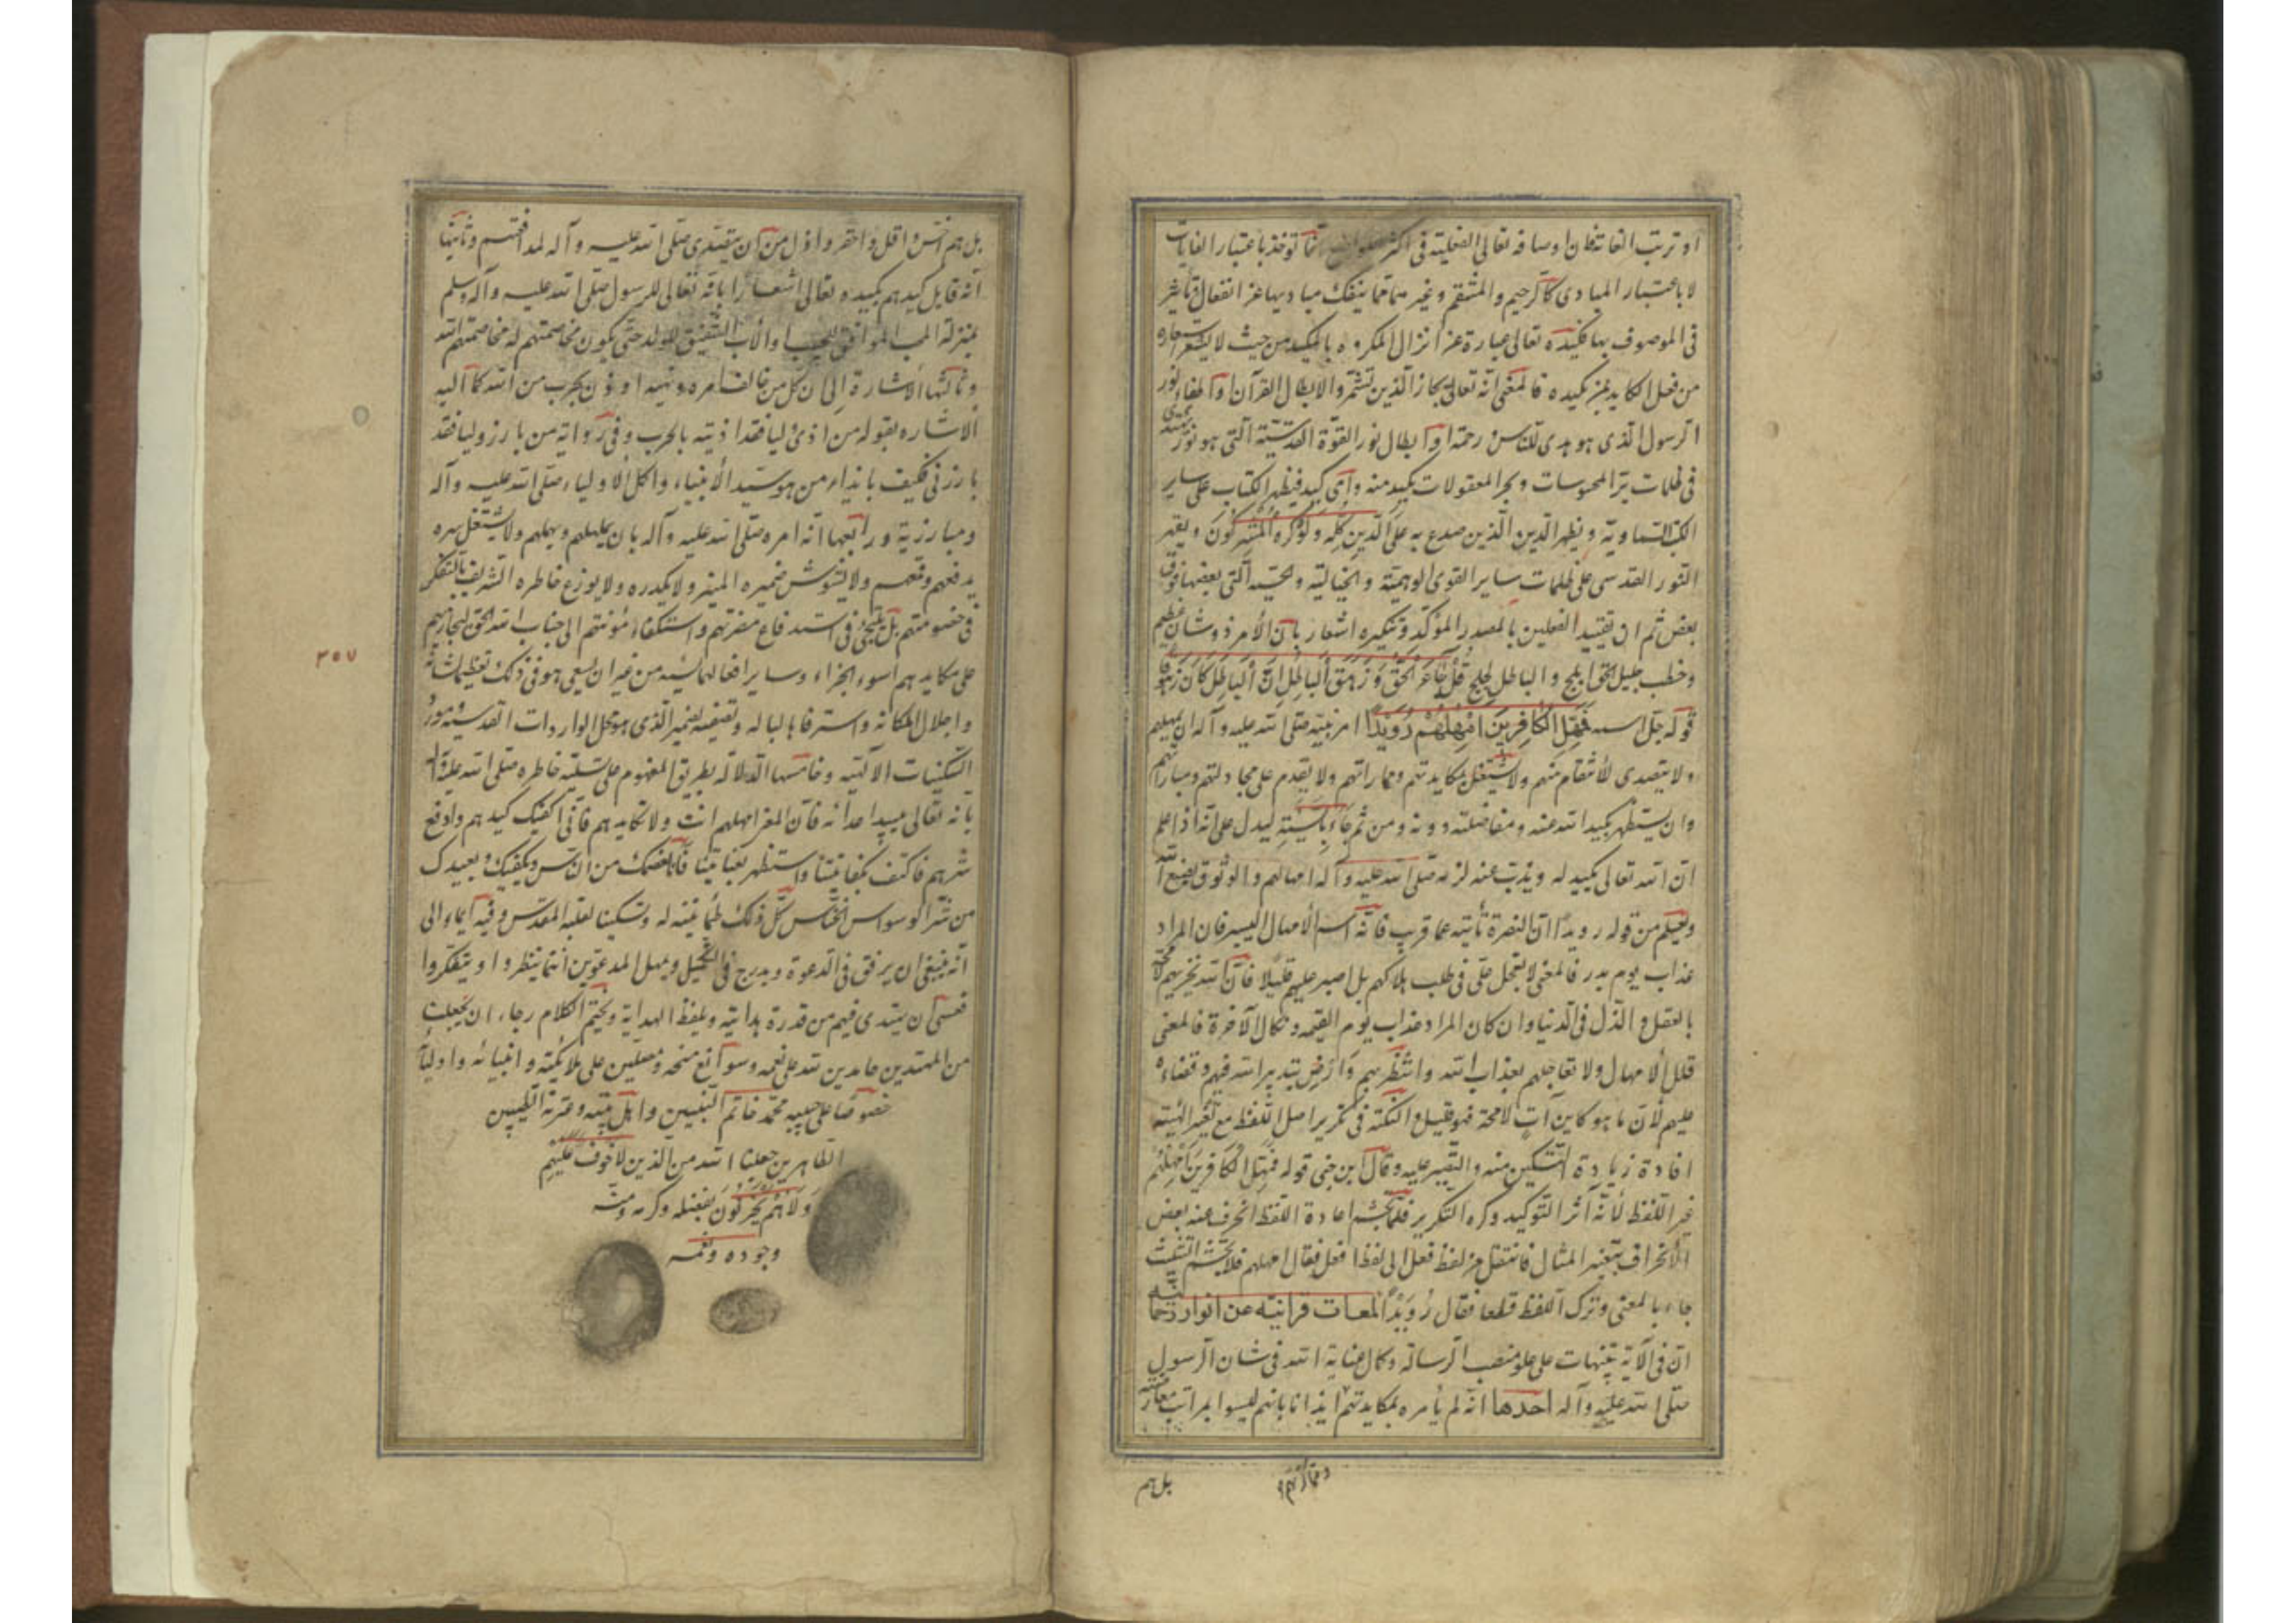 او ترتب الغاية فان اوصافه تعالى الفعلية فى اكثر انما توخذ باعتبار الغايات
لا باعتبار المبادى كالرحيم والمنتقم وغير مما ينفك مباديها عن انفعال وتأثر
فى الموصوف بها فكيده تعالى عبارة عن انزال المكروه بالمكيد من حيث لا يشعر استعاره
من فعل الكايد بمن يكيده فالمعنى انه تعالى يجاز الذين تشمروا لابطال القرآن او اطفاء نور
الرسول الذى هو هدى للناس رحمة او ابطال نور القوة القدسية التى هو نور يهتدى
فى ظلمات بر المحسوسات وبحر المعقولات بكيد منه واى كيد فيظهر الكتاب على ساير
الكتب السماوية ويظهر الدين الذين صدع به على الدين كله ولو كره المشركون ويقهر
النور القدسى على ظلمات ساير القوى الوهمية والخيالية والحسية التى بعضها فوق
بعض ثم ان تقييد الفعلين بالمصدر المؤكد وتنكيره اشعار بان الأمر ذو شان عظيم
وخطب جليل الحق ابلج والباطل لجلج قل جاء الحق وزهق الباطل ان الباطل كان زهوقا
قوله جل اسمه فمهل الكافرين امهلهم رويدا امر نبيه صلى الله عليه وآله ان يمهلهم
ولا يتصدى للانتقام منهم ولا يشتغل بمكايدتهم ومماراتهم ولا يقدم على مجادلتهم ومبارزتهم
وان يستظهر بكيد الله عنه ومفاضلته دونه ومن ثم جاء بالسببية ليدل على انه اذا علم
ان الله تعالى يكيد له ويذب عنه لزمه صلى الله عليه وآله امهالهم والوثوق بصنع الله
وليعلم من قوله رويدا ان النصرة تأتيه عما قريب فانه اسم الامهال اليسير فان المراد
عذاب يوم بدر فالمعنى لا تعجل على فى طلب هلاكهم بل اصبر عليهم قليلا فان الله يخزيهم لا محة
بالقتل والذل فى الدنيا وان كان المراد عذاب يوم القيمة ونكال الآخرة فالمعنى
قلل الامهال ولا تعاجلهم بعذاب الله وانتظر بهم وارض بتدبير الله فيهم وقضاءه
عليهم لأن ما هو كاين آت لا محة فهو قليل والنكتة فى تكرير اصل اللفظ مع تغير البنية
افادة زيادة التسكين منه والتصبير عليه وقال ابن جنى قوله فمهل الكافرين امهلهم
غير اللفظ لأنه آثر التوكيد وكره التكرير فلما تجشم اعادة اللفظ انحرف عنه بعض
الانحراف بتغير المثال فانتقل من لفظ فعل الى لفظ افعل فقال امهلهم فلما تجشم التثليث
جاء بالمعنى وترك اللفظ قطعا فقال رويدا لمعات قرانية عن انوار رحمانية
ان فى الآية تنبيهات على علو منصب الرسالة وكمال عناية الله فى شان الرسول
صلى الله عليه وآله احدها انه لم يأمره بمكايدتهم ايذانا بانهم ليسوا بمراتب معارضته
بل هم
بل هم اخس واقل واحقر واذل من ان يتصدى صلى الله عليه وآله لمدافعتهم وثانيها
انه قابل كيدهم بكيده تعالى اشعارا بانه تعالى للرسول صلى الله عليه وآله وسلم
بمنزلة المحب الموافق للحبيب والأب الشفيق للولد حتى يكون مخاصمتهم له مخاصمتهم الله
وثالثها الاشارة الى ان كل من خالف امره ونهيه اوذن بحرب من الله كما اليه
الاشاره بقوله من اذى وليا فقد اذنته بالحرب وفى رواية من بارز وليا فقد
بارزنى فكيف بايذاء من هو سيد الأنبياء واكمل الاولياء صلى الله عليه وآله
ومبارزته ورابعها انه امره صلى الله عليه وآله بان يمهلهم ويهملهم ولا يشتغل سره
بدفعهم وقمعهم ولا يشوش ضميره المنير ولا يكدره ولا يوزع خاطره الشريف بالتفكر
فى خصومتهم بل يلتجئ فى استدفاع مضرتهم واستكفاء مؤنتهم الى جناب الله الحق ليجازيهم
على مكايدهم اسوء الجزاء وساير افعالهم السيئة من غير ان يسعى هو فى ذلك تعظيما لشانه
واجلالا لمكانه واسترفاها لباله وتصفية لضميره الذى هو محل الواردات القدسية ومورد
السكنيات الالهية وخامسها الدلالة بطريق المفهوم على تسلية خاطره صلى الله عليه وآله
بانه تعالى مبيد اعدائه فان المغزا مهلهم انت ولا تكايدهم فانى اكفيك كيدهم وادفع
شرهم فاكتف بكفايتنا واستظهر بعنايتنا فانا نعصمك من الناس ويكفيك ونعيدك
من شر الوسواس الخناس كل ذلك طمأنينة له وتسكينا لقلبه المقدس وفيه ايماء الى
انه ينبغى ان يرفق فى الدعوة ويدرج فى التحميل ويمهل المدعوين انما ينظروا ويتفكروا
فعسى ان يبتدى فيهم من قدرة هدايته ويلفظ الهداية ولنختم الكلام رجاء ان يجعلنا
من المهتدين حامدين لله على نعمه وسوابغ منحه ومصلين على ملائكته وانبيائه واوليائه
خصوصا على حبيبه محمد خاتم النبيين واهل بيته وعترته الطيبين
الطاهرين جعلنا الله من الذين لا خوف عليهم
ولا هم يحزنون بفضله وكرمه ومنه
وجوده ونعمه
٣٥٧